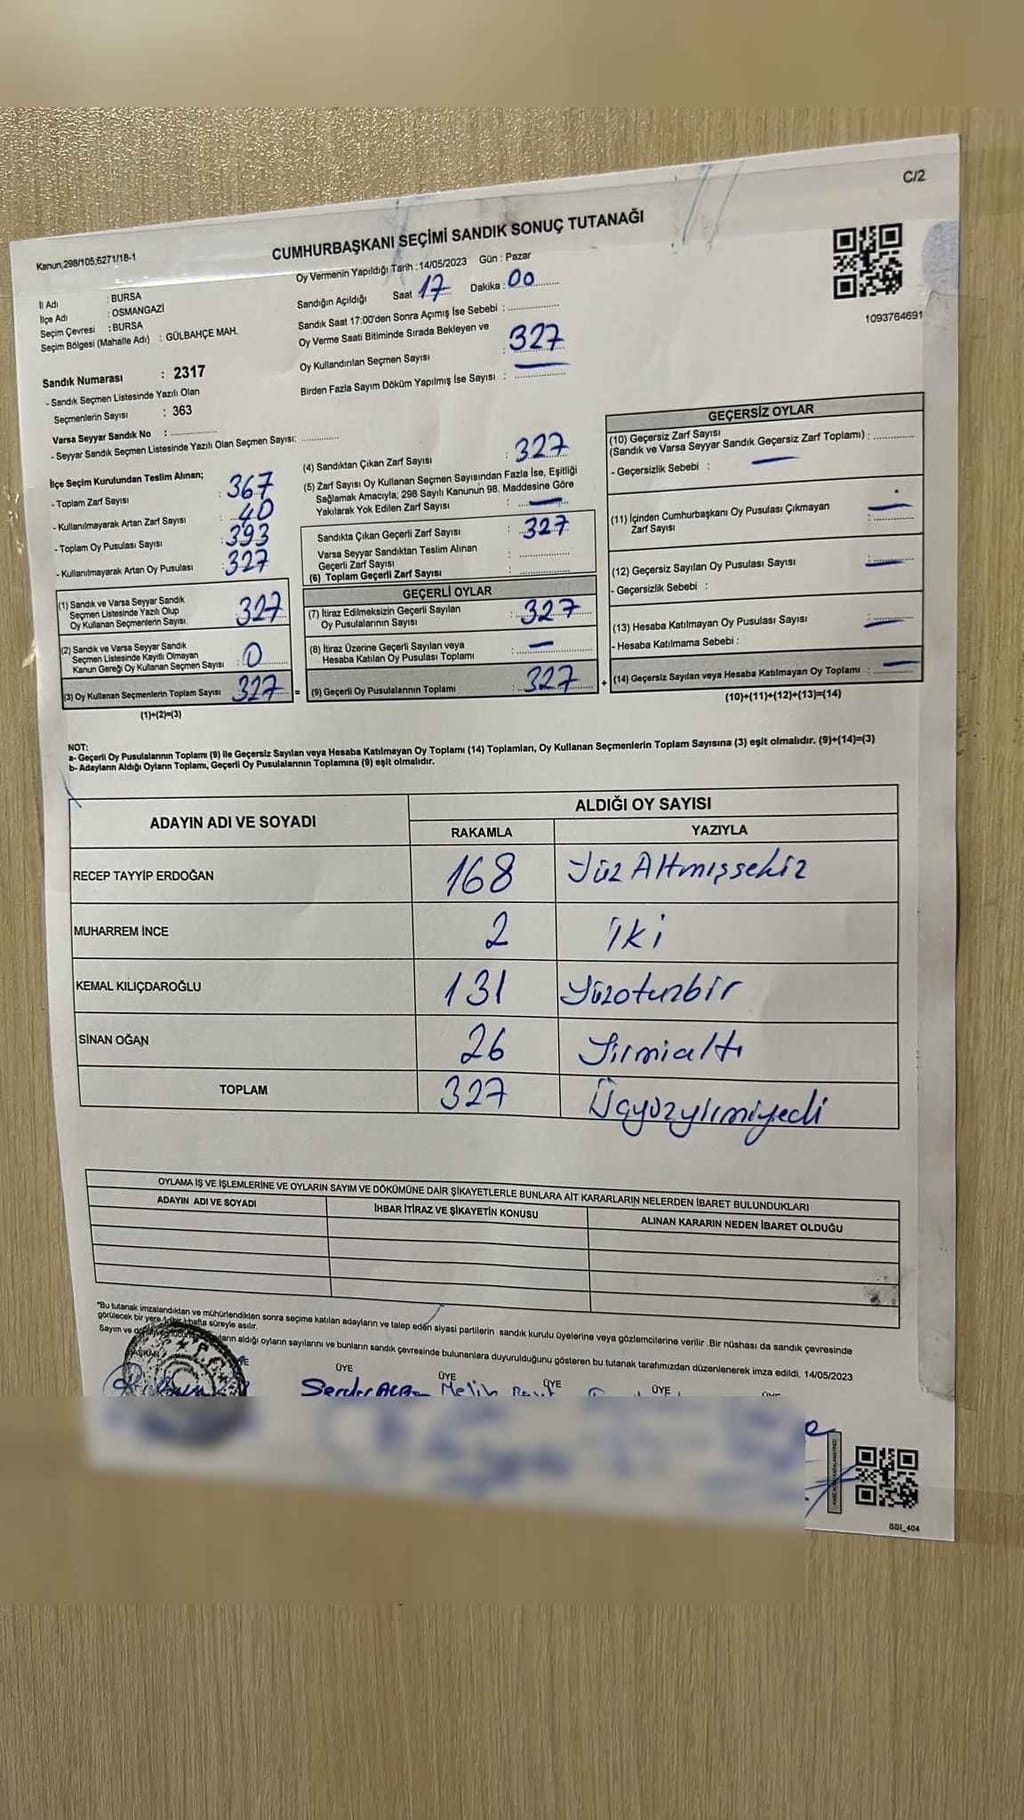 C/2
Kanun,298/105;6271/18-1
CUMHURBAŞKANI SEÇİMİ SANDIK SONUÇ TUTANAĞI
1093764691
İl Adı : BURSA
İlçe Adı : OSMANGAZİ
Seçim Çevresi : BURSA
Seçim Bölgesi (Mahalle Adı) : GÜLBAHÇE MAH.
Sandık Numarası : 2317
- Sandık Seçmen Listesinde Yazılı Olan
Seçmenlerin Sayısı : 363
Varsa Seyyar Sandık No :
- Seyyar Sandık Seçmen Listesinde Yazılı Olan Seçmen Sayısı:
Oy Vermenin Yapıldığı Tarih : 14/05/2023 Gün : Pazar
Sandığın Açıldığı Saat 17 Dakika : 00
Sandık Saat 17:00'den Sonra Açımış İse Sebebi :
Oy Verme Saati Bitiminde Sırada Bekleyen ve
Oy Kullandırılan Seçmen Sayısı : 327
Birden Fazla Sayım Döküm Yapılmış İse Sayısı :
İlçe Seçim Kurulundan Teslim Alınan;
- Toplam Zarf Sayısı : 367
- Kullanılmayarak Artan Zarf Sayısı : 40
- Toplam Oy Pusulası Sayısı : 393
- Kullanılmayarak Artan Oy Pusulası : 327
(1) Sandık ve Varsa Seyyar Sandık
Seçmen Listesinde Yazılı Olup
Oy Kullanan Seçmenlerin Sayısı : 327
(2) Sandık ve Varsa Seyyar Sandık
Seçmen Listesinde Kayıtlı Olmayan
Kanun Gereği Oy Kullanan Seçmen Sayısı : 0
(3) Oy Kullanan Seçmenlerin Toplam Sayısı 327 =
(1)+(2)=(3)
(4) Sandıktan Çıkan Zarf Sayısı : 327
(5) Zarf Sayısı Oy Kullanan Seçmen Sayısından Fazla İse, Eşitliği
Sağlamak Amacıyla; 298 Sayılı Kanunun 98. Maddesine Göre
Yakılarak Yok Edilen Zarf Sayısı : —
Sandıkta Çıkan Geçerli Zarf Sayısı : 327
Varsa Seyyar Sandıktan Teslim Alınan
Geçerli Zarf Sayısı :
(6) Toplam Geçerli Zarf Sayısı :
GEÇERLİ OYLAR
(7) İtiraz Edilmeksizin Geçerli Sayılan
Oy Pusulalarının Sayısı : 327
(8) İtiraz Üzerine Geçerli Sayılan veya
Hesaba Katılan Oy Pusulası Toplamı : —
(9) Geçerli Oy Pusulalarının Toplamı : 327 +
GEÇERSİZ OYLAR
(10) Geçersiz Zarf Sayısı
(Sandık ve Varsa Seyyar Sandık Geçersiz Zarf Toplamı) :
- Geçersizlik Sebebi : —
(11) İçinden Cumhurbaşkanı Oy Pusulası Çıkmayan
Zarf Sayısı : —
(12) Geçersiz Sayılan Oy Pusulası Sayısı : —
- Geçersizlik Sebebi :
(13) Hesaba Katılmayan Oy Pusulası Sayısı : —
- Hesaba Katılmama Sebebi :
(14) Geçersiz Sayılan veya Hesaba Katılmayan Oy Toplamı : —
(10)+(11)+(12)+(13)=(14)
NOT:
a- Geçerli Oy Pusulalarının Toplamı (9) ile Geçersiz Sayılan veya Hesaba Katılmayan Oy Toplamı (14) Toplamları, Oy Kullanan Seçmenlerin Toplam Sayısına (3) eşit olmalıdır. (9)+(14)=(3)
b- Adayların Aldığı Oyların Toplamı, Geçerli Oy Pusulalarının Toplamına (9) eşit olmalıdır.
ADAYIN ADI VE SOYADI ALDIĞI OY SAYISI
RAKAMLA YAZIYLA
RECEP TAYYİP ERDOĞAN 168 Yüz Altmışsekiz
MUHARREM İNCE 2 iki
KEMAL KILIÇDAROĞLU 131 Yüzotuzbir
SİNAN OĞAN 26 Yirmialtı
TOPLAM 327 Üçyüzyirmiyedi
OYLAMA İŞ VE İŞLEMLERİNE VE OYLARIN SAYIM VE DÖKÜMÜNE DAİR ŞİKAYETLERLE BUNLARA AİT KARARLARIN NELERDEN İBARET BULUNDUKLARI
ADAYIN ADI VE SOYADI İHBAR İTİRAZ VE ŞİKAYETİN KONUSU ALINAN KARARIN NEDEN İBARET OLDUĞU
"Bu tutanak imzalandıktan ve mühürlendikten sonra seçime katılan adayların ve talep eden siyasi partilerin sandık kurulu üyelerine veya gözlemcilerine verilir. Bir nüshası da sandık çevresinde
görülecek bir yere bir hafta süreyle asılır.
Sayım ve aldığı oyların sayılarını ve bunların sandık çevresinde bulunanlara duyurulduğunu gösteren bu tutanak tarafımızdan düzenlenerek imza edildi. 14/05/2023
ÜYE ÜYE ÜYE ÜYE
Serdar Melih
SSI_404